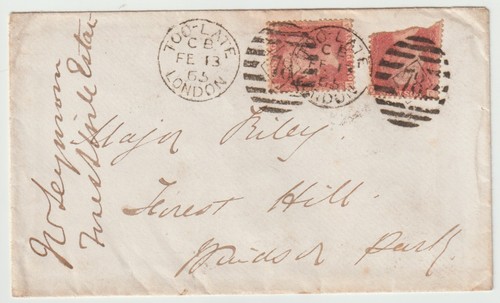 TOO-LATE
C B
FE 13
65
LONDON
TOO-LATE
C B
LONDON
Major Riley.
Forest Hill.
Windsor Park.
W Seymour